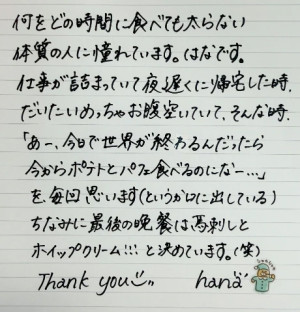 何をどの時間に食べても太らない
体質の人に憧れています。はなです。
仕事が詰まっていて夜遅くに帰宅した時、
だいたいめっちゃお腹空いていて、そんな時、
「あー、今日で世界が終わるんだったら
今からポテトとパフェ食べるのになー…」
を、毎回思います(というか口に出している)
ちなみに最後の晩餐は馬刺しと
ホイップクリーム!!!と決めています。(笑)
Thank you hana